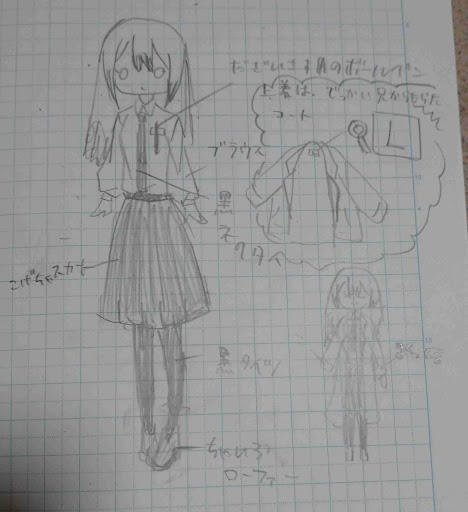 だざいさんのボールペン
上着は、でっかい兄からもらった
コート
L
ブラウス
黒
ネクタイ
こげちゃスカート
黒タイツ
ちゃいろ
ローファー